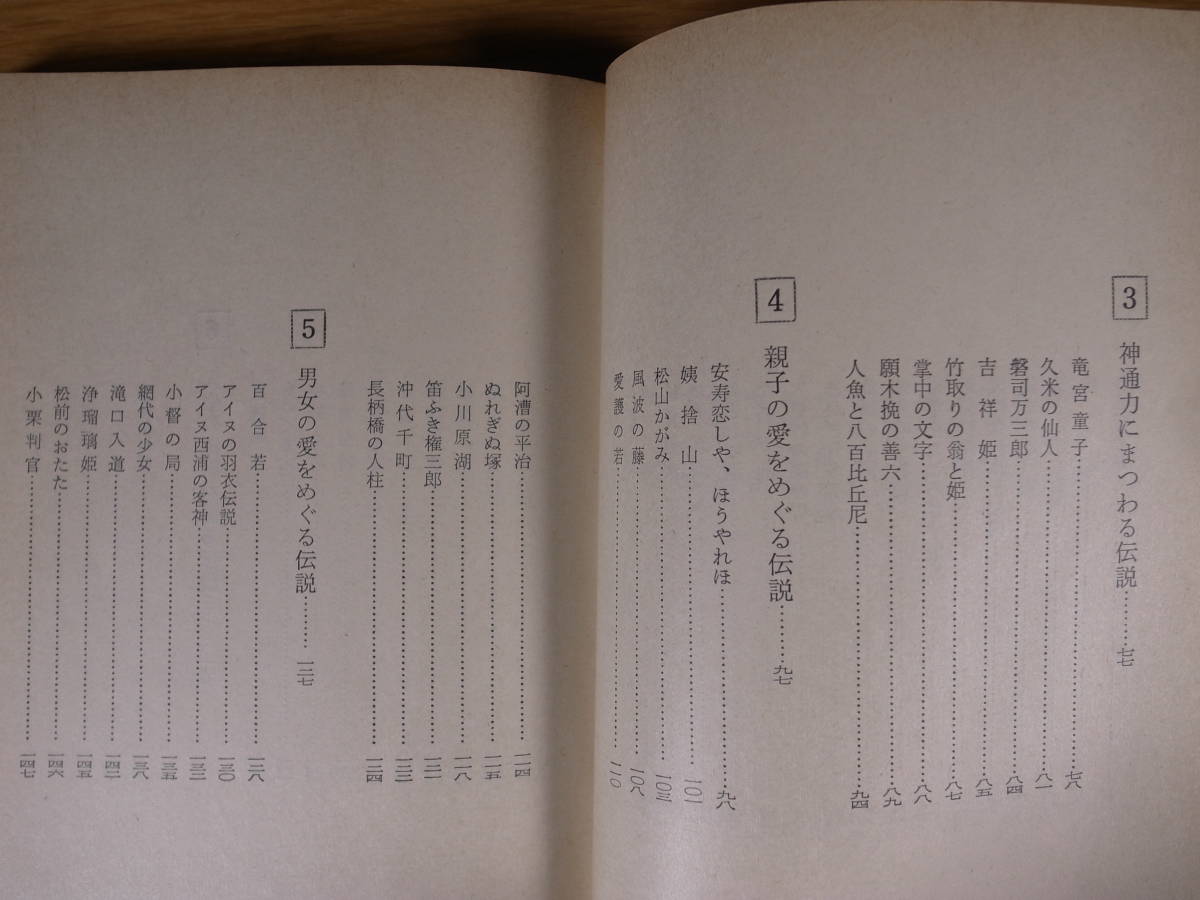 3 神通力にまつわる伝説………七七
竜宮童子………七八
久米の仙人………八一
磐司万三郎………八四
吉祥姫………八五
竹取りの翁と姫………八七
掌中の文字………八八
願木挽の善六………八九
人魚と八百比丘尼………九四
4 親子の愛をめぐる伝説………九七
安寿恋しや、ほうやれほ………九八
姨捨山………一〇一
松山かがみ………一〇三
風波の藤………一〇八
愛護の若………一一〇
阿漕の平治………一一四
ぬれぎぬ塚………一一五
小川原湖………一一八
笛ふき権三郎………一二一
沖代千町………一二二
長柄橋の人柱………一二四
5 男女の愛をめぐる伝説………一二七
百合若………一二八
アイヌの羽衣伝説………一三〇
アイヌ西浦の客神………一三三
小督の局………一三五
網代の少女………一三八
滝口入道………一四二
浄瑠璃姫………一四五
松前のおたた………一四六
小栗判官………一四七